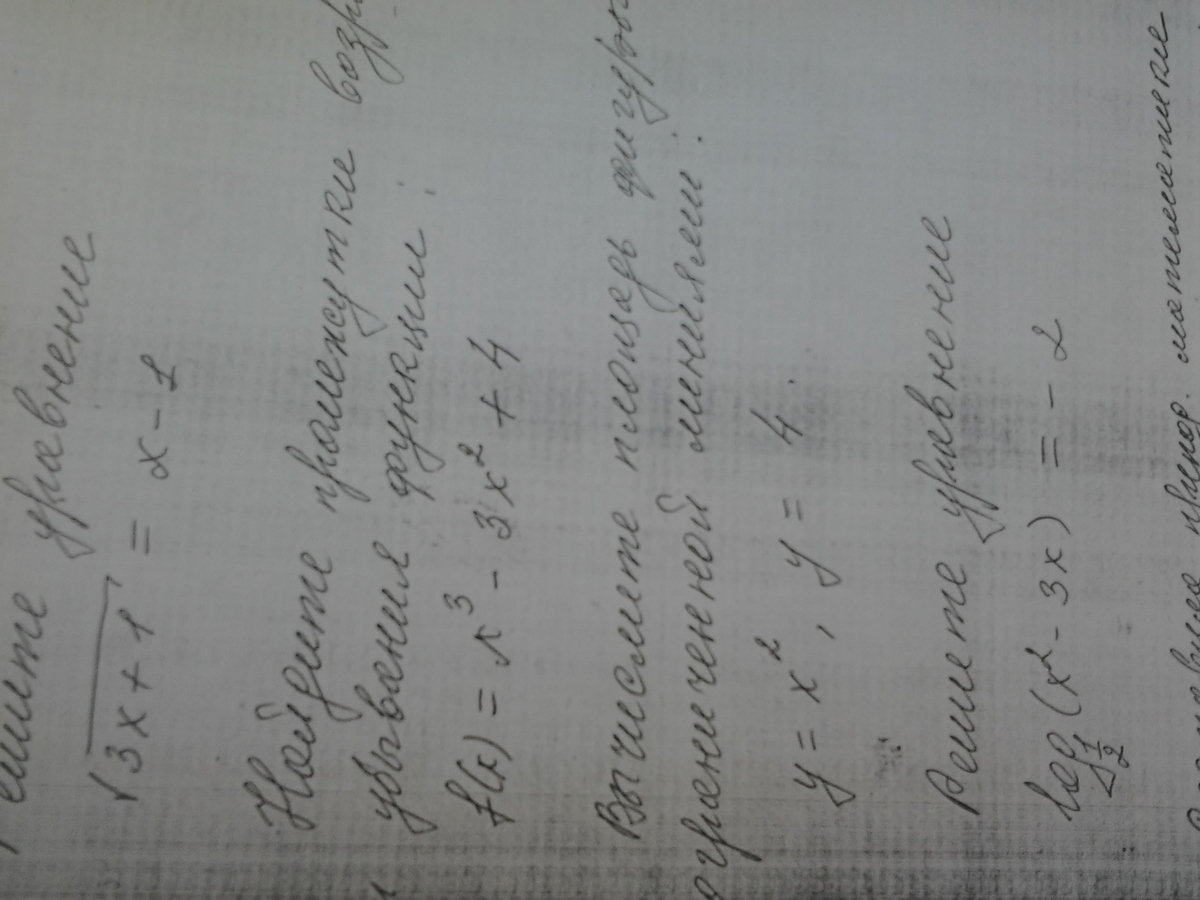 ешите уравнение
√3x+1 = x-1
Найдите промежутки возр
убывания функции:
f(x) = x³ - 3x² + 4
Вычислите площадь фигуры
ограниченной линиями:
y = x², y = 4.
Решите уравнение
log½(x² - 3x) = -2
математике